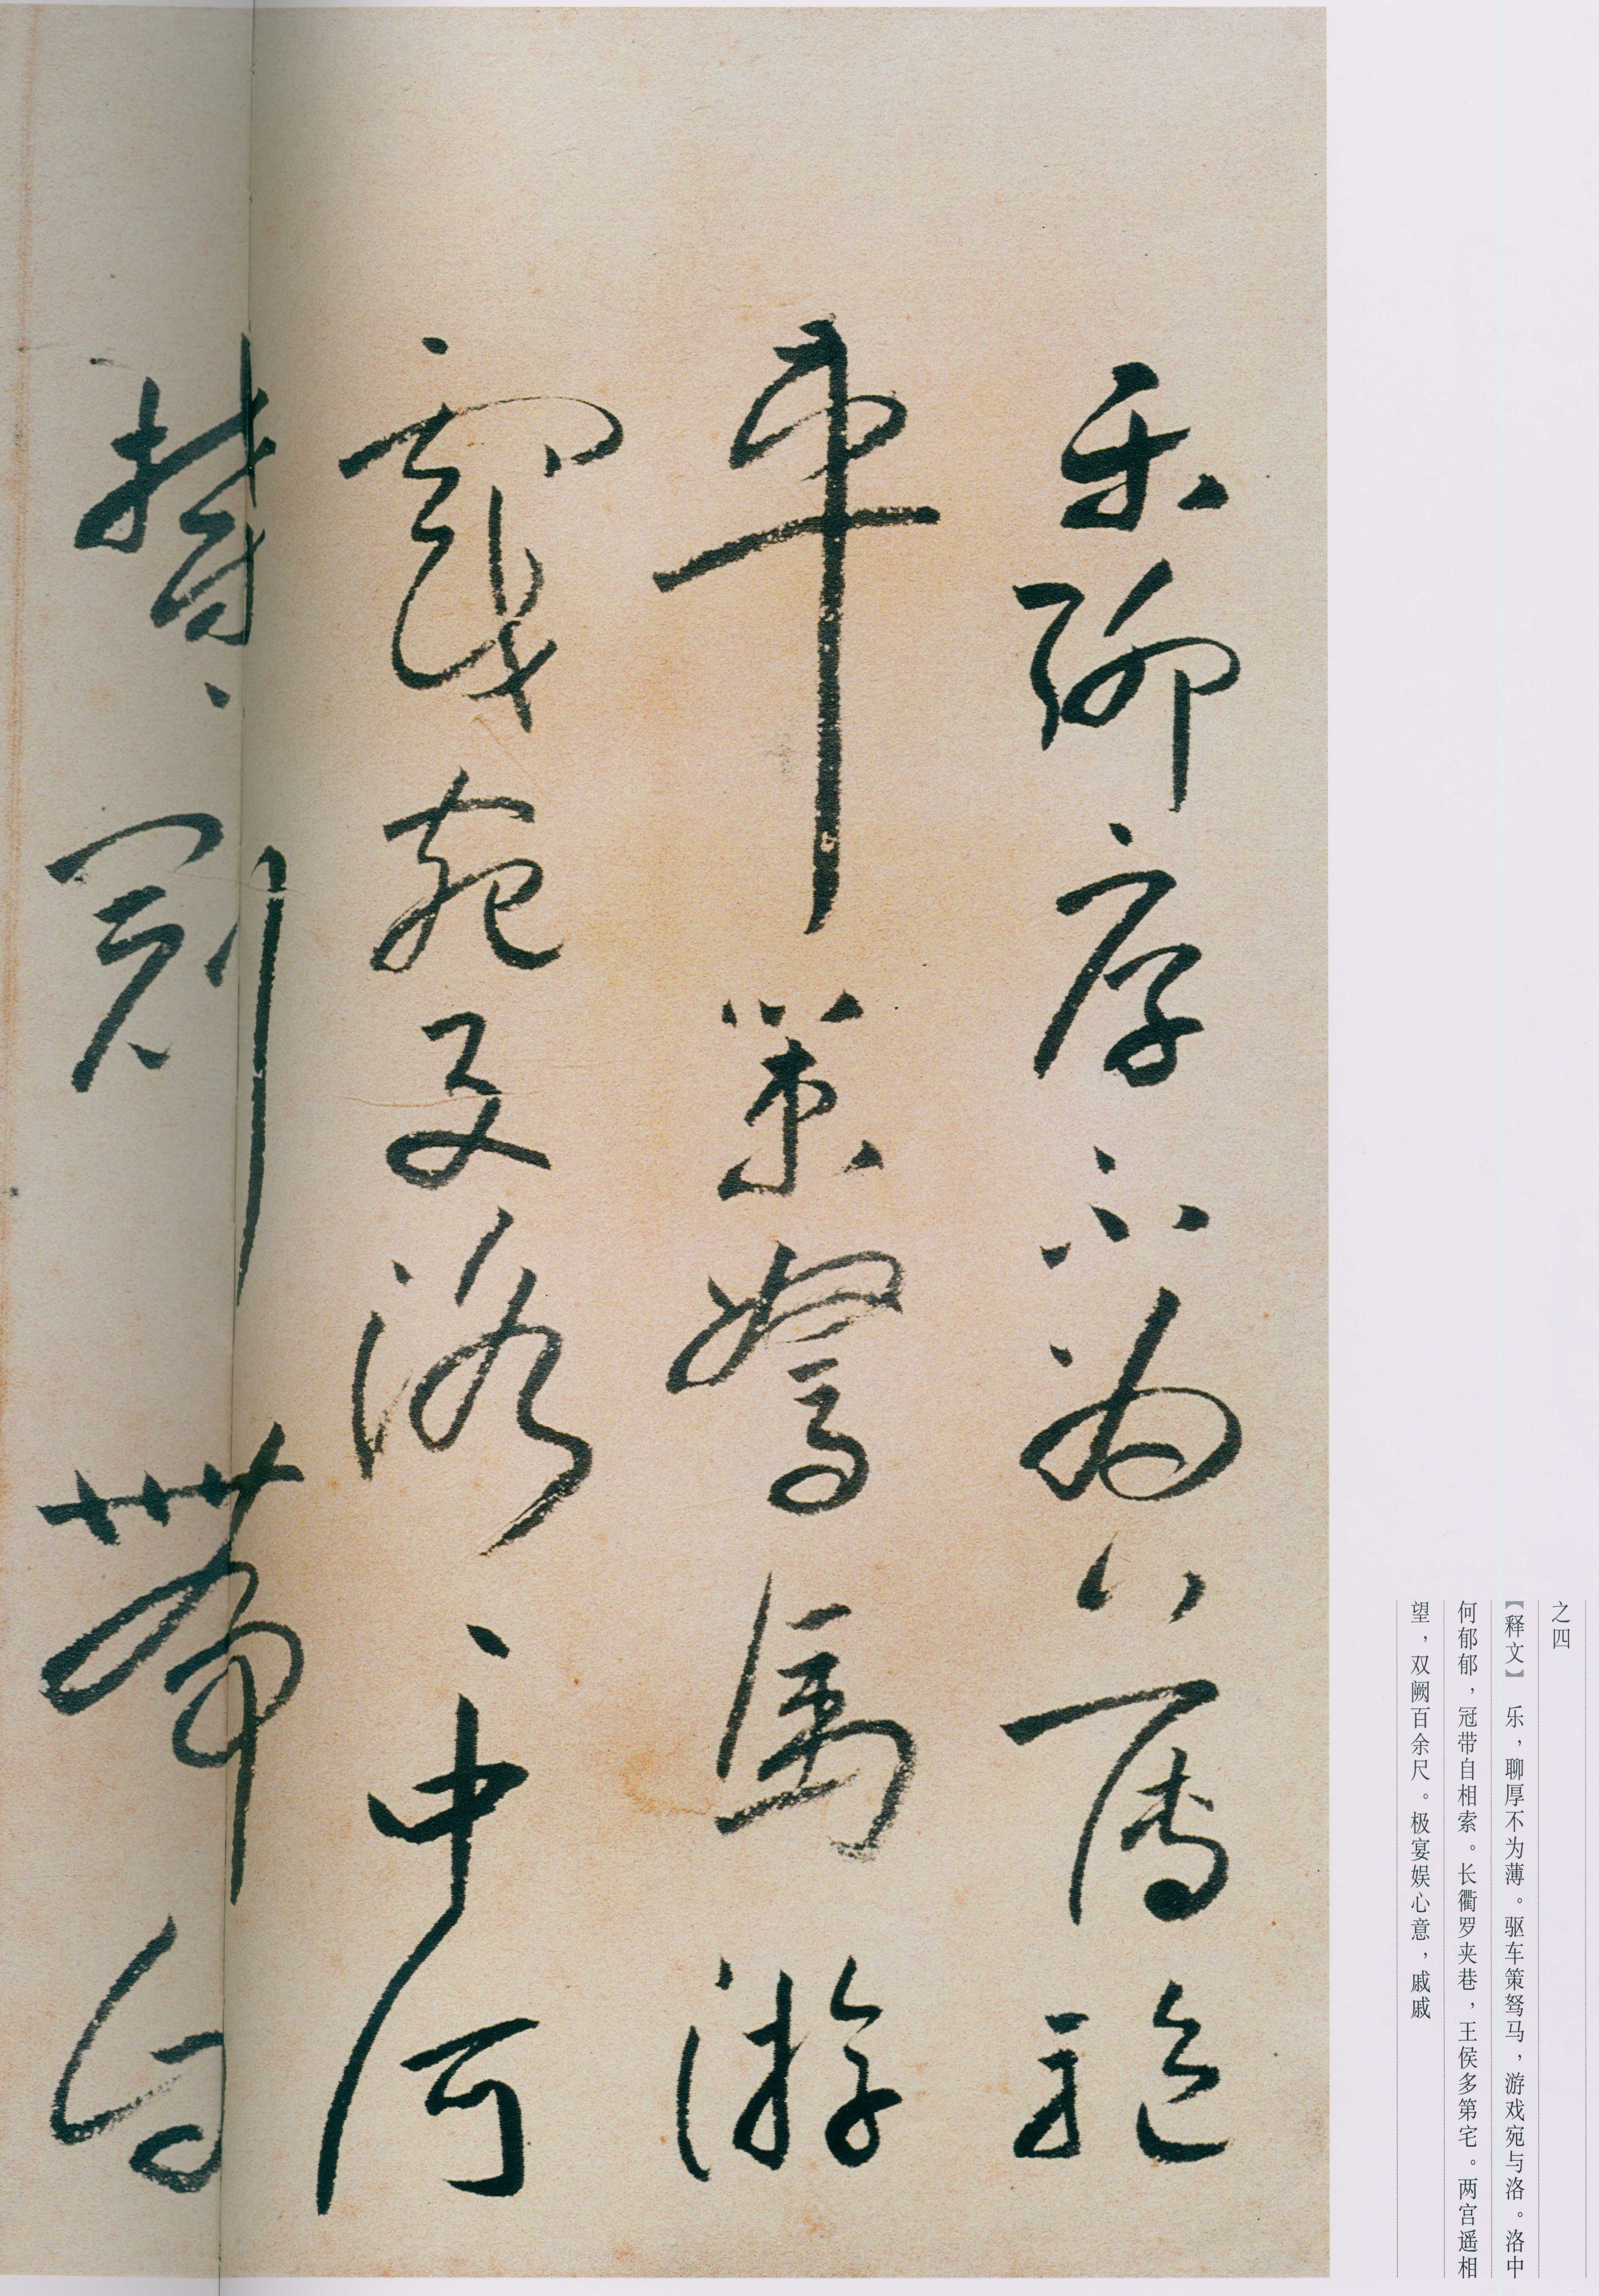 之四
【释文】 乐，聊厚不为薄。驱车策驽马，游戏宛与洛。洛中
何郁郁，冠带自相索。长衢罗夹巷，王侯多第宅。两宫遥相
望，双阙百余尺。极宴娱心意，戚戚
乐聊厚不为薄驱
车策驽马游
戏宛与洛、中何
郁、冠带自